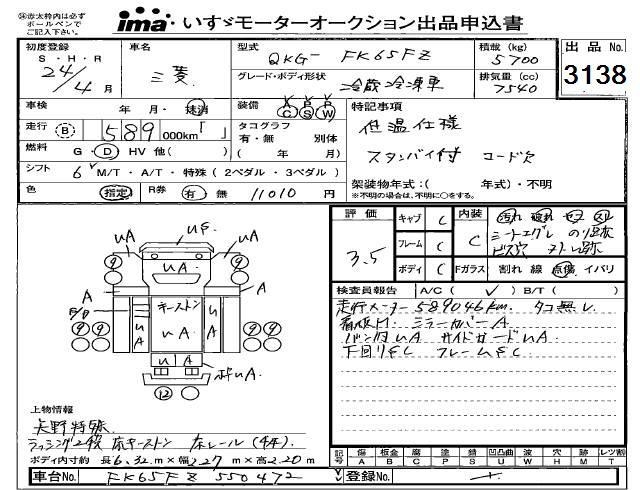 ㊟赤太枠内は必ず
ボールペンで
ご記入下さい。
ima いすゞモーターオークション出品申込書
初度登録 S・H・R 24年 4月
車名 三菱
型式 QKG- FK65FZ
積載 (kg) 5700
出品No. 3138
グレード・ボディ形状 冷蔵冷凍車
排気量 (cc) 7540
車検 年 月・抹消
装備 A C P S P W
特記事項
低温仕様
走行 (B) 589 000km「 」
タコグラフ 有・無 別体
( 年 月)
スタンバイ付 コード欠
燃料 G・D・HV 他( )
シフト 6 M/T・A/T・特殊 (2ペダル・3ペダル)
架装物年式:( 年式)・不明
※不明の場合は、不明に○をする。
色 指定 R券 有・無 11010 円
評価 3.5
キャブ C
フレーム C
ボディ C
内装 C
汚れ 破れ コゲ スレ
シートエグレ のり跡
ビス穴
Fガラス 割れ 線 点傷 イバリ
検査員報告 A/C( ✓ ) B/T( )
走行メーター589046km. タコ無し
看板付 ミラーカバーA
バンパUA サイドガードUA
下回りFC フレームFC
UA UF. UA
9 UA 9
A A
キーストン
UA UA UA
9 9 9 9
U A
UA.
12
上物情報
矢野特殊
ラッシング2段 床キーストン 床レール(4本)
ボディ内寸約 長6.32m×幅2.27m×高2.20m
記号 傷 板金 腐 塗 錆 凹凸曲 波 穴 跡 レツ割
A B C P S U W H M T
車台No. FK65FZ 550472
登録No.